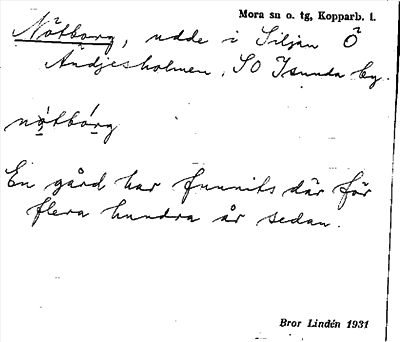 Mora sn o. tg, Kopparb. l.
Nötborg, udde i Siljan Ö
Ändjesholmen, SO Isunda by.
nò̤tbórg
En gård har funnits där för
flera hundra år sedan.
Bror Lindén 1931